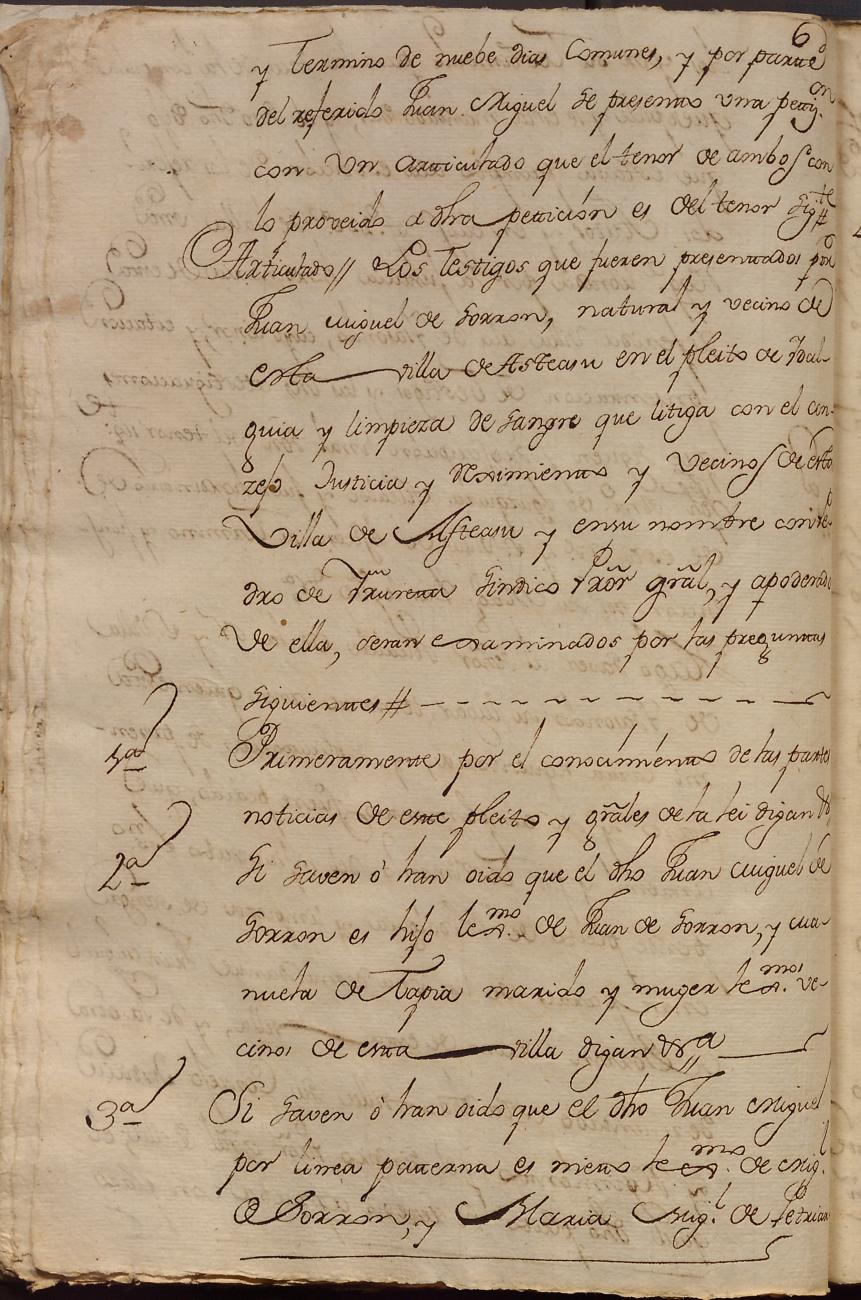 6
y termino de nuebe dias Comunes, y por parte
del referido Juan Miguel se presento una petiçⁿ
con Un articulado que el tenor de ambos con
lo proveido a dha petición es del tenor sigᵗᵉ#
Articulado // Los Testigos que fueren presentados por
Juan Miguel de Sorron, natural y vecino de
esta villa de Asteasu en el pleito de Ydal-
guia y limpieza de sangre que litiga con el con-
zejo Justicia y Reximiento y Vecinos de esta
Villa de Asteasu y en su nombre con Pe-
dro de Sindico Prõr grãl, y apoderado
de ella, seran examinados por las preguntas
siguientes #
1ª Primeramente por el conocimiento de las partes
noticias de este pleito y grãles de la lei digan &ª
2ª Si saven ò han oido que el dho Juan Miguel de
Sorron es hijo lexᵐᵒ. de Juan de Sorron, y Ma-
nuela de Tapia marido y muger lexᵐᵒˢ. ve-
cinos de esta villa digan &ª
3ª Si saven ò han oido que el dho Juan Miguel
por linea paterna es nieto lexᵐᵒ. de Migˡ.
de Sorron, y Maria Migˡ. de